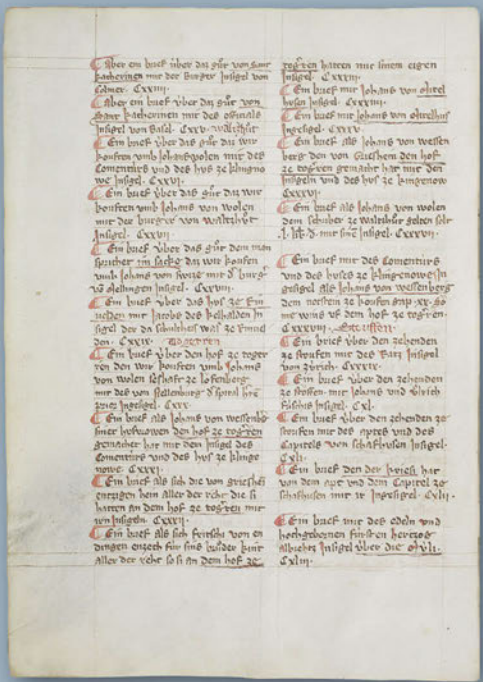 Aber ein brief über daz gůt von sant
katheringen mit der Burger Insigel von
Colmer. Cxxiiii.
Aber ein brief über daz gůt von
sant katherinen mit des officials
Insigel von Basel. Cxxv. waltzhůt
Ein brief über das gůt daz wir
kouften vmb Johans wolen mit des
Comenturs vnd des hus ze klingno
we Insigel. Cxxvi.
Ein brief über das gůt daz wir
kouften vmb Johans von wolen
mit der burger von waltzhůt
Insigel. Cxxvii.
Ein brief über das gůt dem man
sprichet im sacke daz wir kouften
vmb Johans von mit d' burg'
vō mellingen Insigel. Cxxviii.
Ein brief über das hus ze Rin
uelden mit Jacobs des kelhalden In
sigel der da schultheis was ze Rinuel
den. Cxxix. Togerren
Ein brief über den hof ze toger
ren den wir kouften vmb Johans
von wolen seshaft ze lofenberg
mit des von Insigel. Cxxx.
Ein brief als Johans von wessenb'g
siner husvrowen den hof ze togren
gemachet hat mit dem Insigel des
Comenturs vnd des hus ze klinge
nowe. Cxxxi.
Ein brief als sich die von griesheī
entzigen hein aller der reht die si
hatten an dem hof ze togren mit
irn Insigeln. Cxxxii.
Ein brief als sich fritschi von en
dingen enzech für sins brůder kint
aller der reht so si an dem hof ze
togren hatten mit sinem eigen
Insigel. Cxxxiii.
Ein brief mit Johans von
husen Insigel. Cxxxiiii.
Ein brief mit Johans von
Ingesigel. Cxxxv.
Ein brief als Johans von wessen
berg den von Griesheim den hof
ze togren gemachet hat mit den
Insigeln vnd des hus ze klingenow
Cxxxvi.
Ein brief als Johans von wolen
dem schriber ze waltzhůt gelten solt
.l. lib. d. mit sinē Insigel. Cxxxvii.
Ein brief mit des Comenturs
vnd des huses ze klingenowe In
gesigel als Johans von wessenberg
dem ze koufen gap .xx. so
me wins vf dem hof ze togren.
Cxxxviii. Stouffen.
Ein brief über den zehenden
ze stoufen mit des Ratz Insigel
von zürich. Cxxxix.
Ein brief über den zehenden
ze stoffen mit Johans vnd ůlrich
Insigel. Cxl.
Ein brief über den zehenden ze
stoufen mit des aptes vnd des
Capitels von schafhusen Insigel.
Cxli.
Ein brief den der hat
von dem apt vnd dem Capitel ze
schafhusen mit ir Ingesigel. Cxlii.
Ein brief mit des edeln vnd
hochgebornen fürsten hertzog
albrehtz Insigel über die
Cxliii.